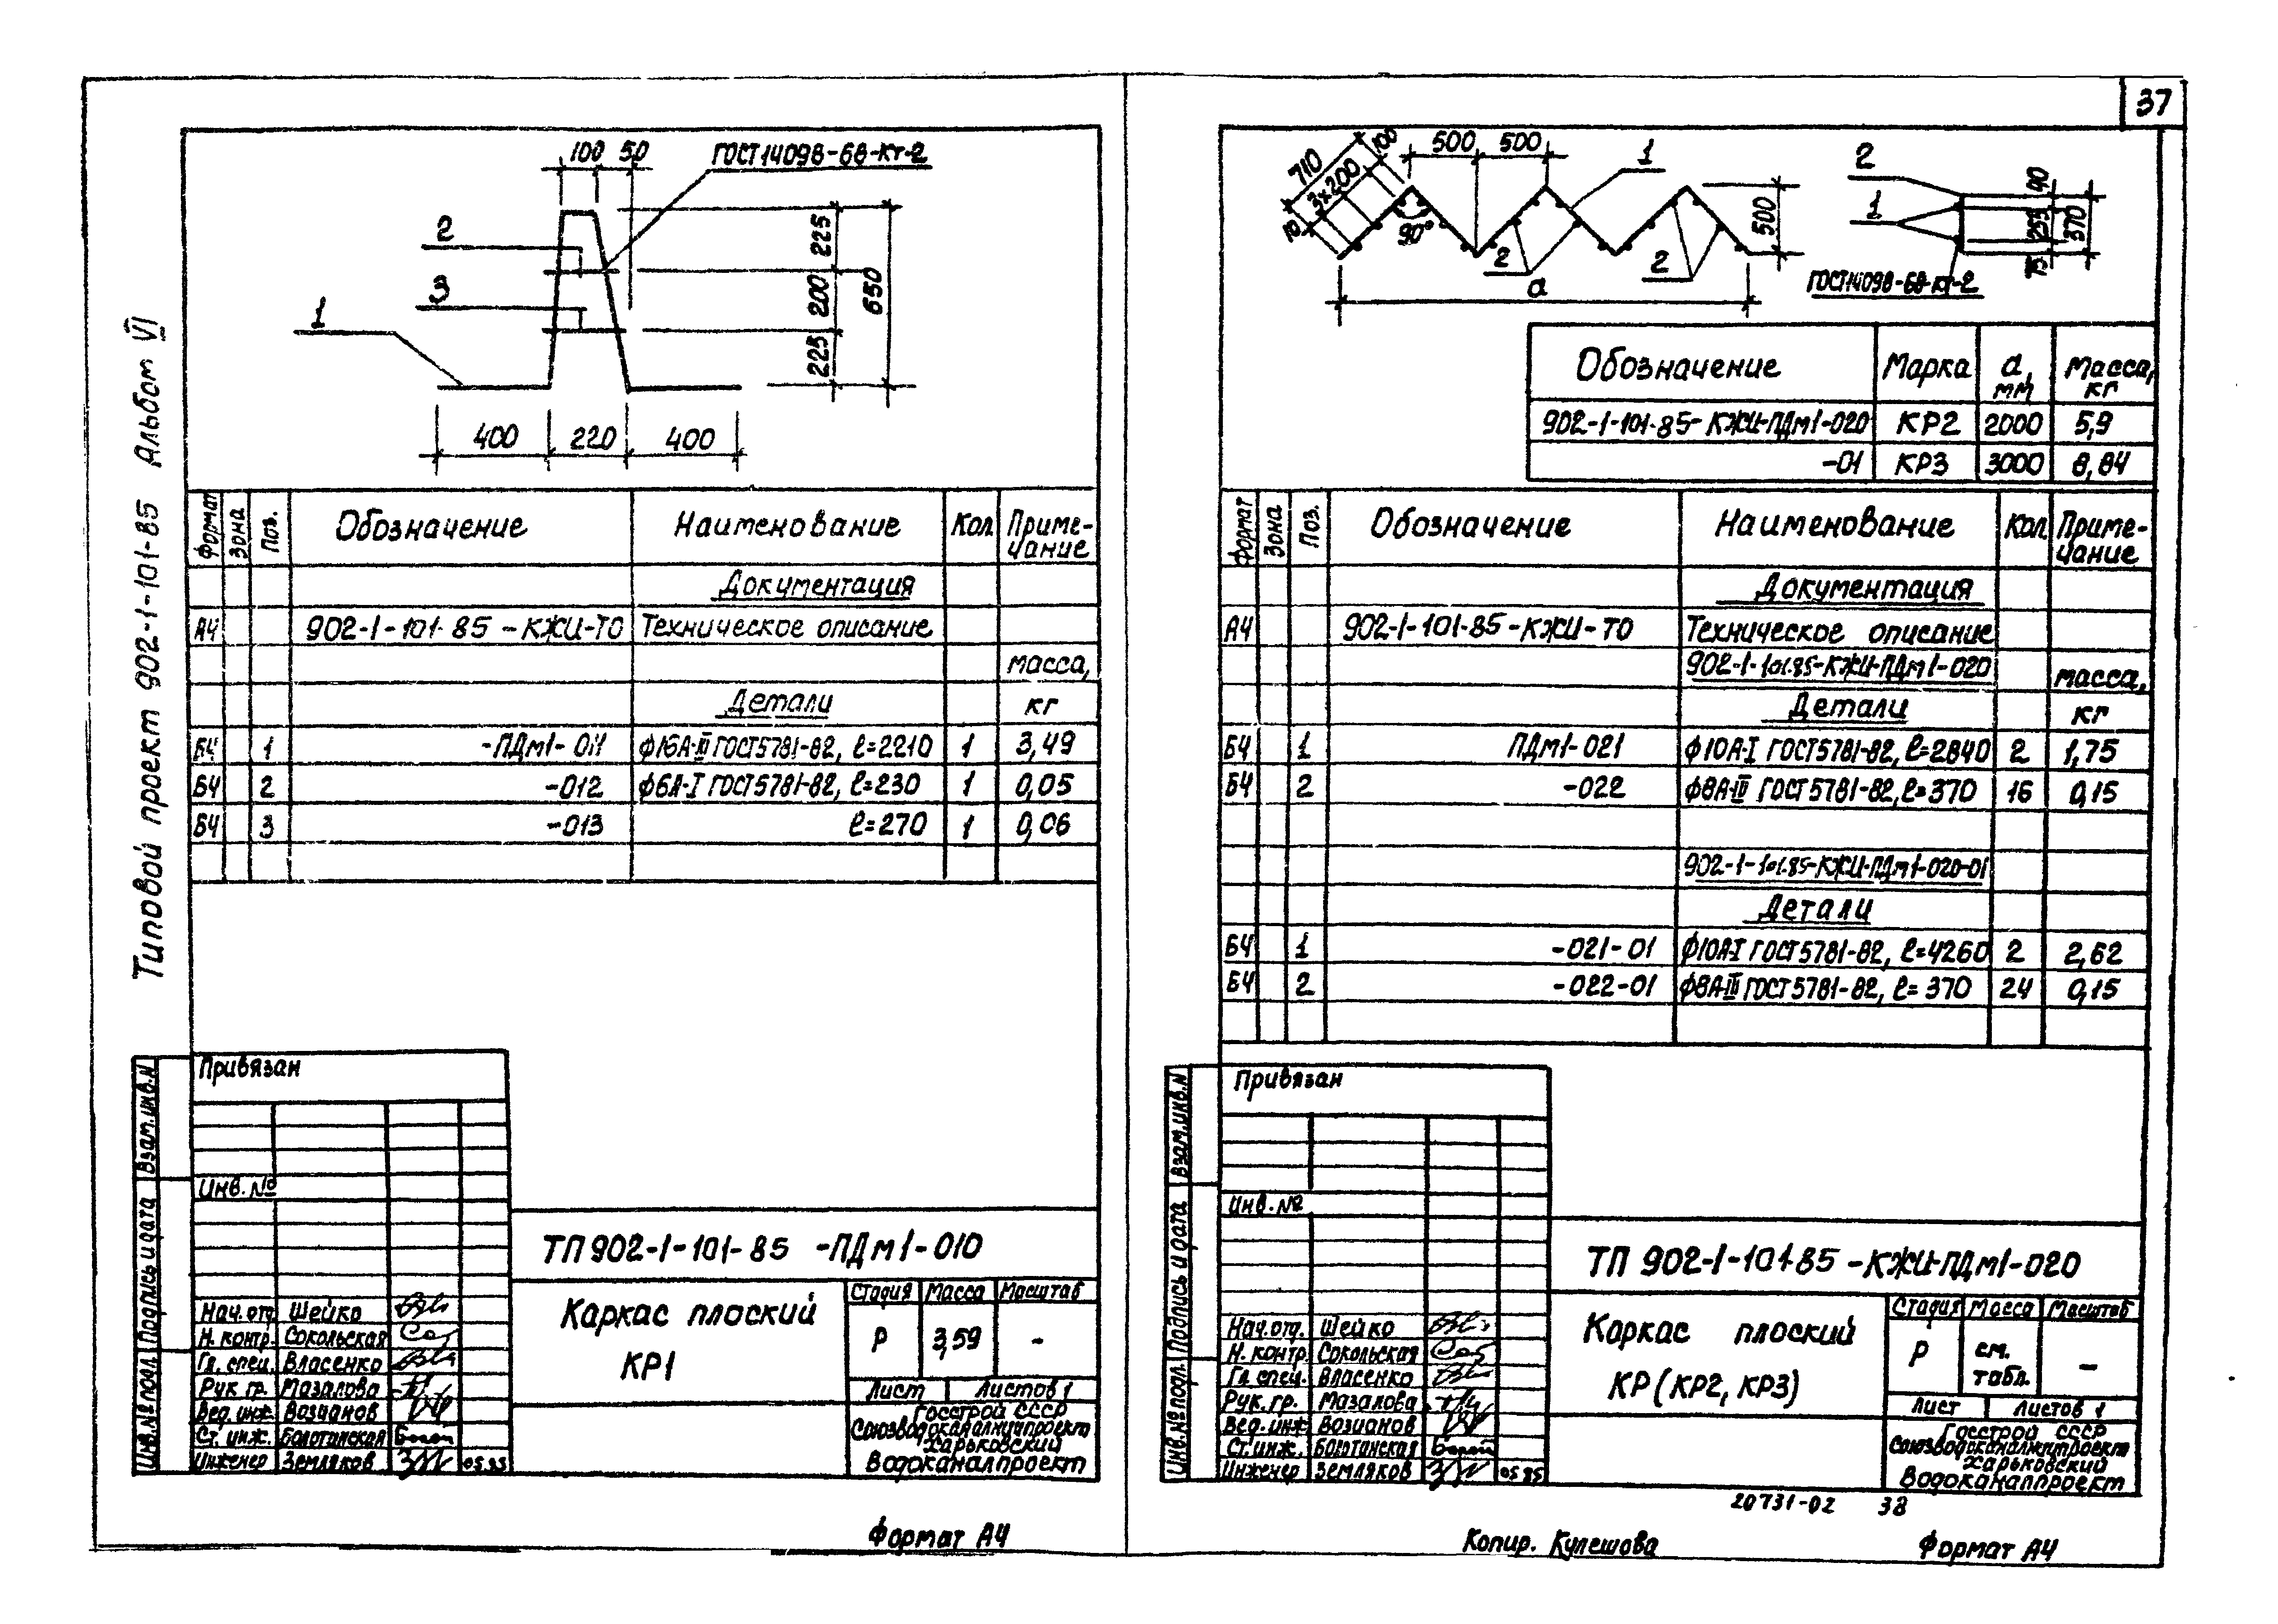 37
Типовой проект 902-1-101-85 Альбом VI
100 50
ГОСТ 14098-68-кт-2
2
3
1
225
200
225
650
400 220 400
Формат
Зона
Поз.
Обозначение
Наименование
Кол
Приме-
чание
Документация
А4 902-1-101-85-КЖИ-ТО Техническое описание
масса,
Детали кг
Б4 1 -ПДм1-011 ф16А-III ГОСТ 5781-82, ℓ=2210 1 3,49
Б4 2 -012 ф6А-I ГОСТ 5781-82, ℓ=230 1 0,05
Б4 3 -013 ℓ=270 1 0,06
Привязан
Инв. №
Взам.инв.N
Подпись и дата
Инв.№ подл.
Нач.отд. Шейко
Н. контр. Сокольская
Гл. спец. Власенко
Рук гр. Мазалова
Вед. инж. Возианов
Ст. инж. Болотанская
Инженер Земляков 05.85
ТП 902-1-101-85 -ПДм1-010
Каркас плоский
КР1
Стадия Масса Масштаб
Р 3,59 -
Лист Листов 1
Госстрой СССР
Союзводоканалниипроект
Харьковский
Водоканалпроект
Формат А4
710
3х200
100
10
500 500
1
90°
2
2
а
500
2
1
40
255
75
370
ГОСТ 14098-68-кт-2
Обозначение Марка а, мм Масса, кг
902-1-101-85-КЖИ-ПДм1-020 КР2 2000 5,9
-01 КР3 3000 8,84
Формат
Зона
Поз.
Обозначение
Наименование
Кол
Приме-
чание
Документация
А4 902-1-101-85-КЖИ-ТО Техническое описание
902-1-101.85-КЖИ-ПДм1-020 масса,
Детали кг
Б4 1 ПДм1-021 ф10А-I ГОСТ 5781-82, ℓ=2840 2 1,75
Б4 2 -022 ф8А-III ГОСТ 5781-82, ℓ=370 16 0,15
902-1-101.85-КЖИ-ПДм1-020-01
Детали
Б4 1 -021-01 ф10А-I ГОСТ 5781-82, ℓ=4260 2 2,62
Б4 2 -022-01 ф8А-III ГОСТ 5781-82, ℓ=370 24 0,15
Привязан
Инв. №
Взам.инв.N
Подпись и дата
Инв.№ подл.
Нач.отд. Шейко
Н. контр. Сокольская
Гл спец. Власенко
Рук. гр. Мазалова
Вед. инж Возианов
Ст. инж. Болотанская
Инженер Земляков 05.85
ТП 902-1-101-85 -КЖИ-ПДм1-020
Каркас плоский
КР (КР2, КР3)
Стадия Масса Масштаб
Р см. табл. -
Лист Листов 1
Госстрой СССР
Союзводоканалниипроект
Харьковский
Водоканалпроект
20731-02 38
Копир. Кулешова
Формат А4